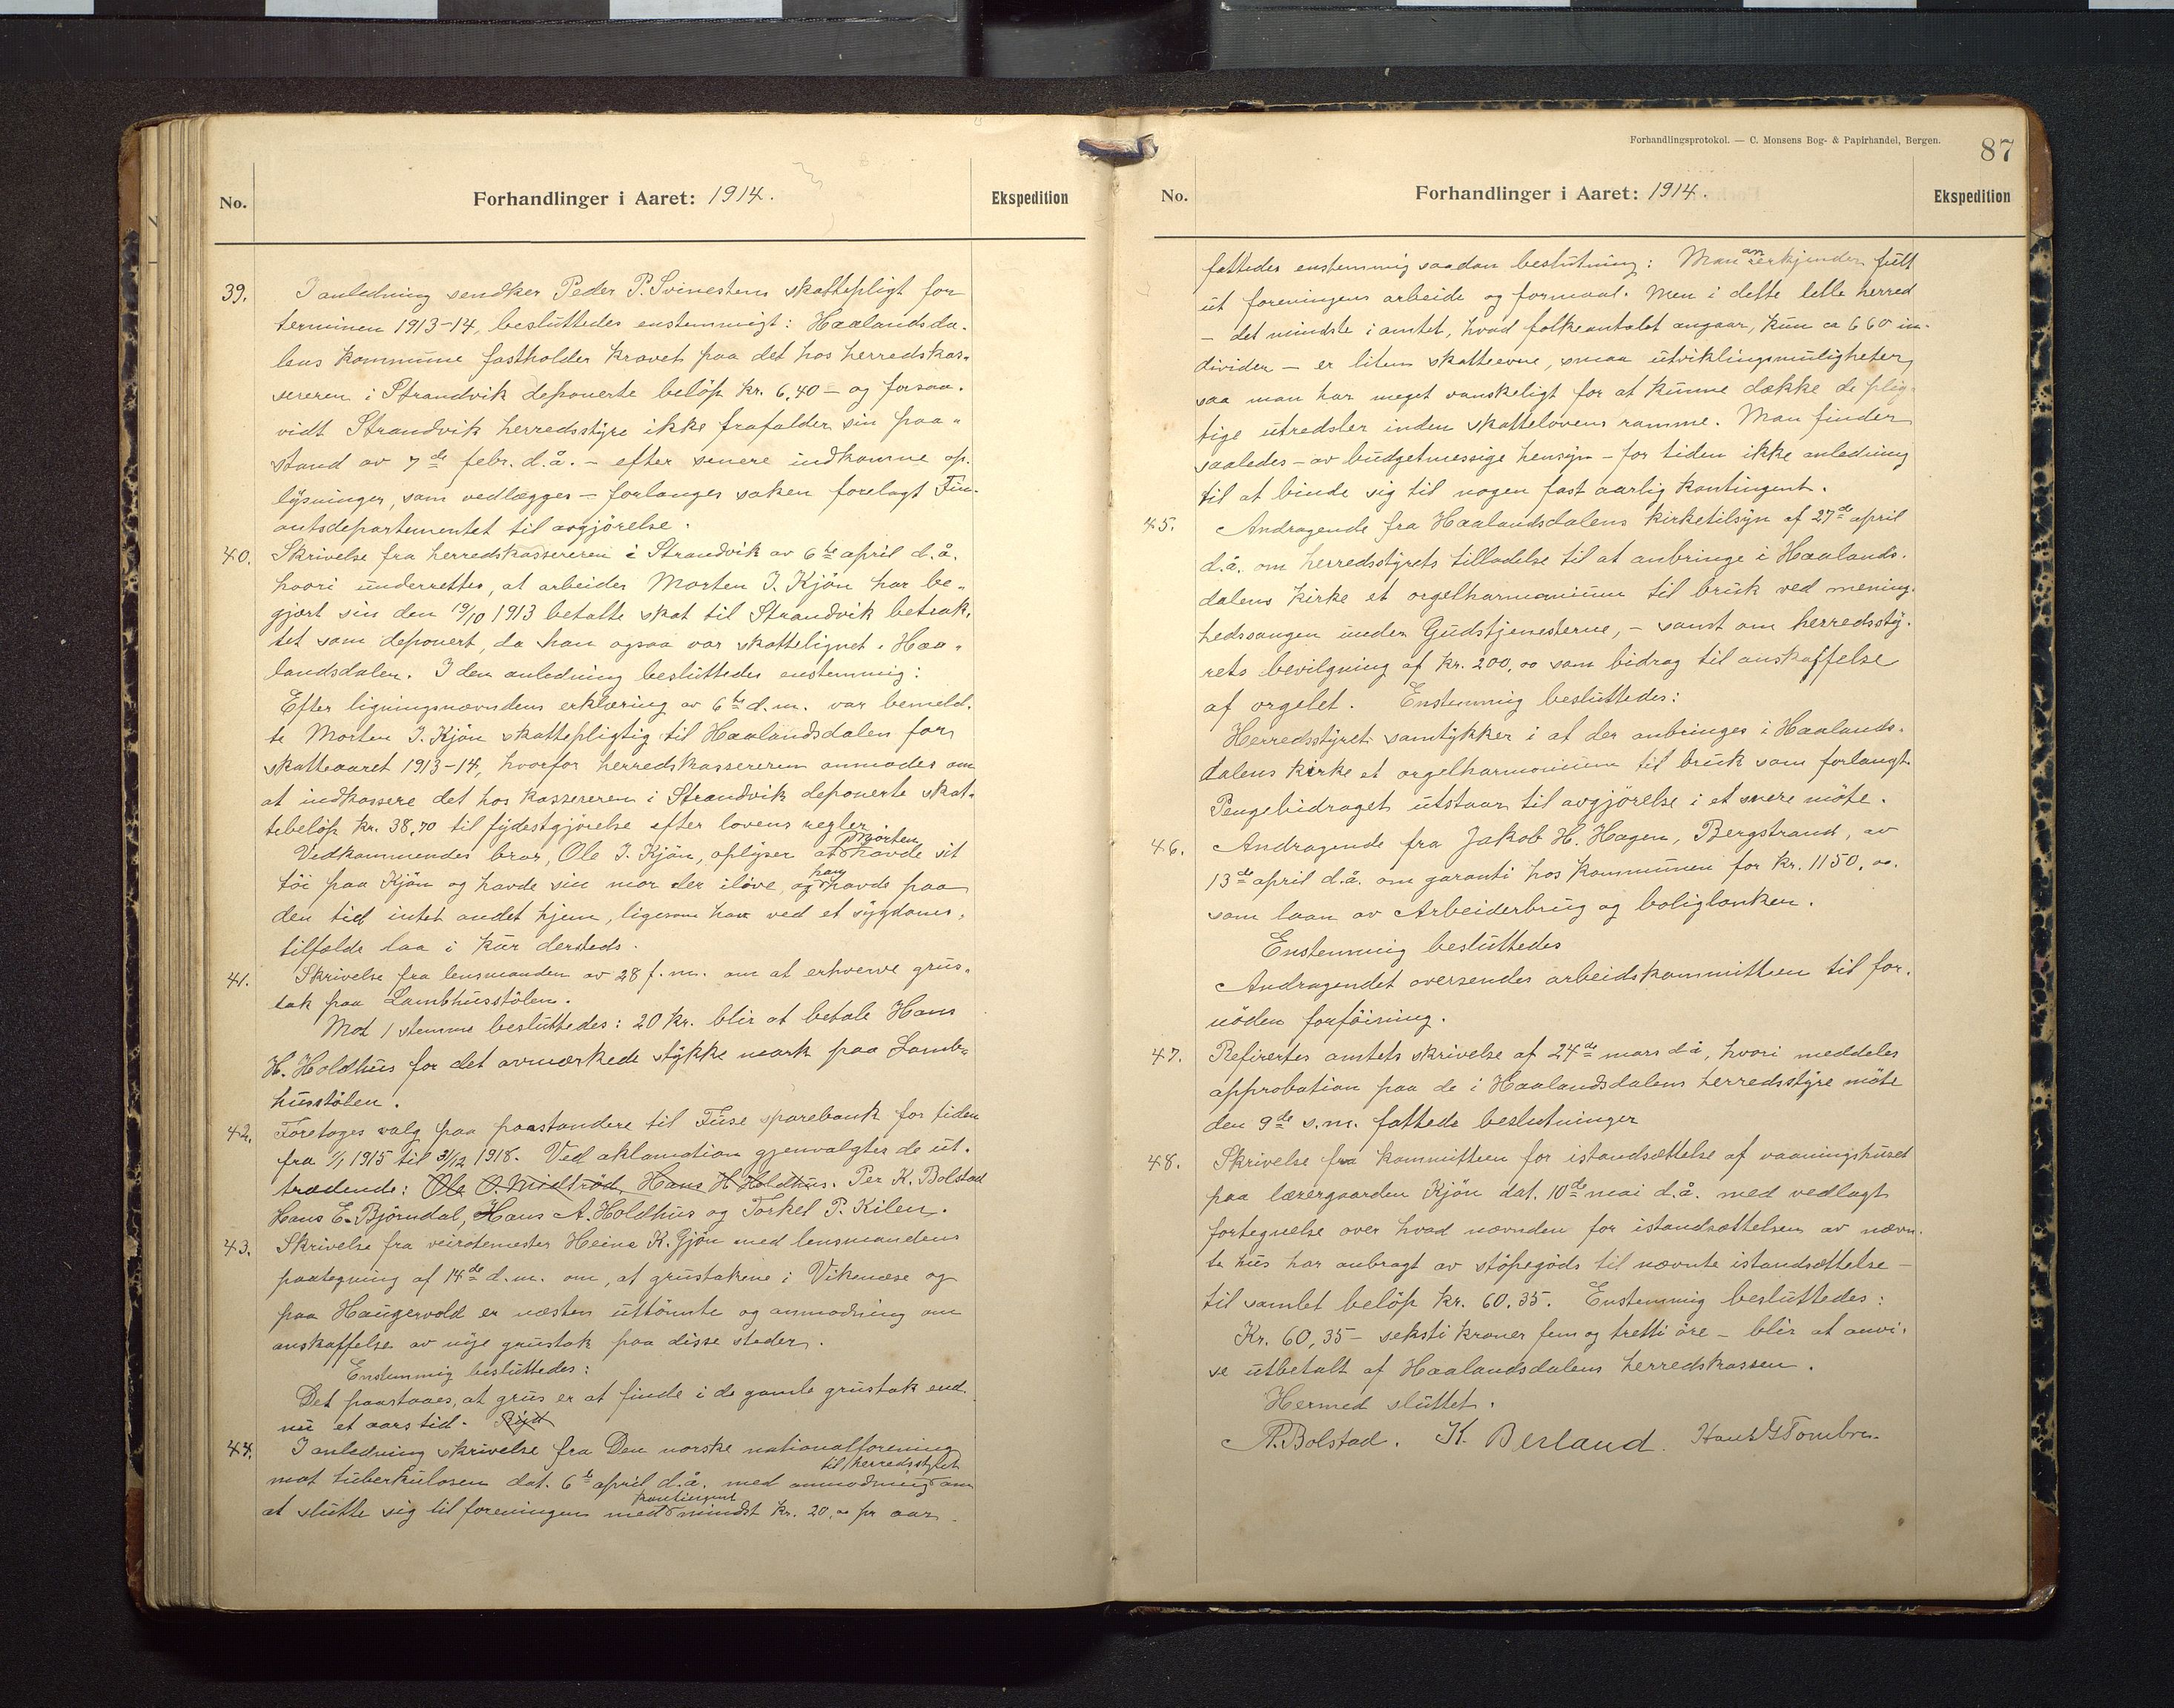 No.
Forhandlinger i Aaret: 1914.
Ekspedition
39. I anledning Peder P. Svinestens skattepligt for
terminen 1913-14, besluttedes enstemmigt: Haalandsda-
lens kommune fastholder kravet paa det hos herredskas-
sereren i Strandvik deponerte belöp kr. 6,40 - og forsaa-
vidt Strandvik herredsstyre ikke frafalder sin paa-
stand av 7de febr. d.å. - efter senere indkomne op-
lysninger, som vedlægges - forlanges saken forelagt Fin-
antsdepartementet til avgjörelse.
40. Skrivelse fra herredskassereren i Strandvik av 6te april d.å.
hvori underrettes, at arbeider Morten J. Kjön har be-
gjært sin den 19/10 1913 betalte skat til Strandvik betrak-
tet som deponert, da han ogsaa var skattelignet i Haa-
landsdalen. I den anledning besluttedes enstemmig:
Efter ligningsnævndens erklæring av 6te d.m. var bemeld-
te Morten J. Kjön skattepligtig til Haalandsdalen for
skatteaaret 1913-14, hvorfor herredskassereren anmodes om
at indkassere det hos kassereren i Strandvik deponerte skat-
tebelöp kr. 38,70 til fyldestgjörelse efter lovens regler.
Vedkommendes bror, Ole J. Kjön, oplyser at Morten havde sit
töi paa Kjön og havde sin mor der ilive, og han havde paa
den tid intet andet hjem, ligesom han ved et sygdoms-
tilfælde laa i kur dersteds.
41. Skrivelse fra lensmanden av 28 f.m. om at erhverve grus-
tak paa Lambhusstölen.
Mot 1 stemme besluttedes: 20 kr. blir at betale Hans
H. Holdhus for det avmærkede stykke mark paa Lamb-
husstölen.
42. Foretages valg paa forstandere til Fuse sparebank for tiden
fra 1/1 1915 til 31/12 1918. Ved aklamation gjenvalgtes de ut-
trædende: Ole O. Midtröd, Hans H Holdhus. Per K. Bolstad
Hans E. Björndal, Hans A. Holdhus og Torkel P. Kilen.
43. Skrivelse fra veirotemester Heine K. Gjön med lensmandens
paategning af 14de d.m. om, at grustakene i Vikenæse og
paa Haugervold er næsten uttömte og anmodning om
anskaffelse av nye grustak paa disse steder.
Enstemmig besluttedes:
Det paastaaes, at grus er at finde i de gamle grustak end-
nu et aars tid.
44. I anledning skrivelse fra Den norske nationalforening
mot tuberkulosen dat. 6te april d.å. med anmodning til herredsstyret om
at slutte sig til foreningen med kontingent mindst kr. 20,00 pr aar
Forhandlingsprotokol. — C. Monsens Bog- & Papirhandel, Bergen.
87
No.
Forhandlinger i Aaret: 1914.
Ekspedition
fattedes enstemmig saadan beslutning: Man anerkjender fult
ut foreningens arbeide og formaal. Men i dette lille herred
- det mindste i amtet, hvad folkeantalet angaar, kun ca 660 in-
divider - er liten skatteevne, smaa utviklingsmuligheter,
saa man har meget vanskeligt for at kunne dække de plig-
tige utredsler inden skattelovens ramme. Man finder
saaledes - av budgetmessige hensyn - for tiden ikke anledning
til at binde sig til nogen fast aarlig kontingent.
45. Andragende fra Haalandsdalens kirketilsyn af 27de april
d.å. om herredsstyrets tilladelse til at anbringe i Haalands-
dalens kirke et orgelharmonium til bruk ved menig-
hedssangen under Gudstjenesterne, - samt om herredssty-
rets bevilgning af kr. 200,00 som bidrag til anskaffelse
af orgelet. Enstemmig besluttedes:
Herredsstyret samtykker i at der anbringes i Haalands-
dalens kirke et orgelharmonium til bruk som forlangt.
Pengebidraget utstaar til avgjörelse i et snere möte.
46. Andragende fra Jakob H. Hagen, Bergstrand, av
13de april d.å. om garanti hos kommunen for kr. 1150,00.
som laan av Arbeiderbrug og boligbanken.
Enstemmig besluttedes
Andragendet oversendes arbeidskommitteen til for-
nöden forföining.
47. Refirertes amtets skrivelse af 24de mars d å, hvori meddeles
approbation paa de i Haalandsdalens herredsstyre möte
den 9de s.m. fattede beslutninger
48. Skrivelse fra kommitteen for istandsættelse af vaaningshuset
paa lærergaarden Kjön dat. 10de mai d.å. med vedlagt
fortegnelse over hvad nævnden for istandsættelsen av nævn-
te hus har anbragt av stöpegods til nævnte istandsættelse -
til samlet belöp kr. 60.35. Enstemmig besluttedes:
Kr. 60,35 - seksti kroner fem og tretti öre - blir at anvi-
se utbetalt af Haalandsdalens herredskassen.
Hermed sluttet.
A. Bolstad. K. Berland. Hans G Tombre.